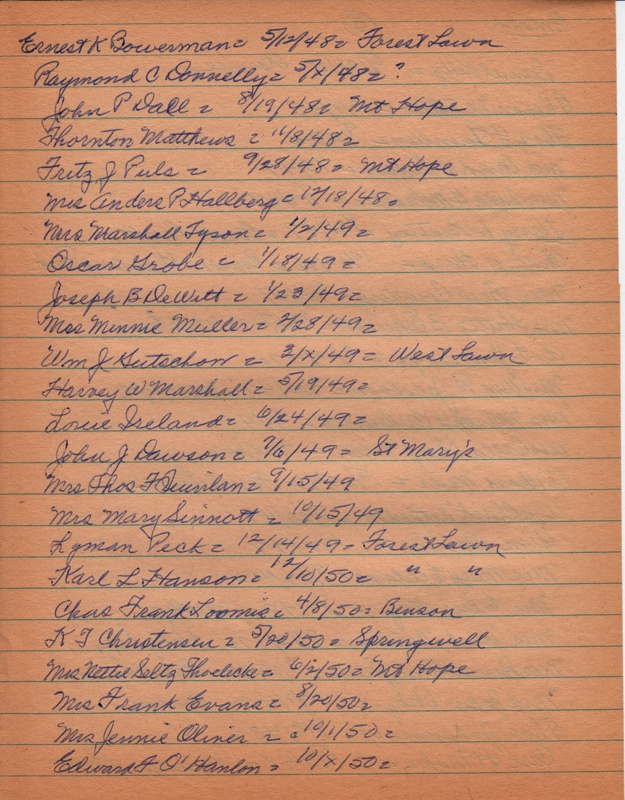 Ernest K Bowerman = 5/12/48 = Forest Lawn
Raymond C Donnelly = 5/x/48 = ?
John P Dall = 8/19/48 = Mt Hope
Thornton Matthews = 11/8/48 =
Fritz J Puls = 9/28/48 = Mt Hope
Mrs Anders P Hallberg = 12/18/48 =
Mrs Marshall Tyson = 1/2/49 =
Oscar Grobe = 1/18/49 =
Joseph B DeWitt = 1/23/49 =
Mrs Minnie Muller = 2/28/49 =
Wm J Gutschow = 3/x/49 = West Lawn
Harvey W Marshall = 5/19/49 =
Louie Ireland = 6/24/49 =
John J Dawson = 7/6/49 = St Mary's
Mrs Thos F = 9/15/49
Mrs Mary Sinnott = 10/15/49
Lyman Peck = 12/14/49 = Forest Lawn
Karl L Hanson = 12/10/50 = " "
Chas Frank Loomis = 4/8/50 = Benson
K T Christensen = 5/20/50 = Springwell
Mrs Nettie Seltz Thoelecke = 6/2/50 = Mt Hope
Mrs Frank Evans = 8/20/50 =
Mrs Jennie Oliver = 10/1/50 =
Edward F O'Hanlon = 10/x/50 =